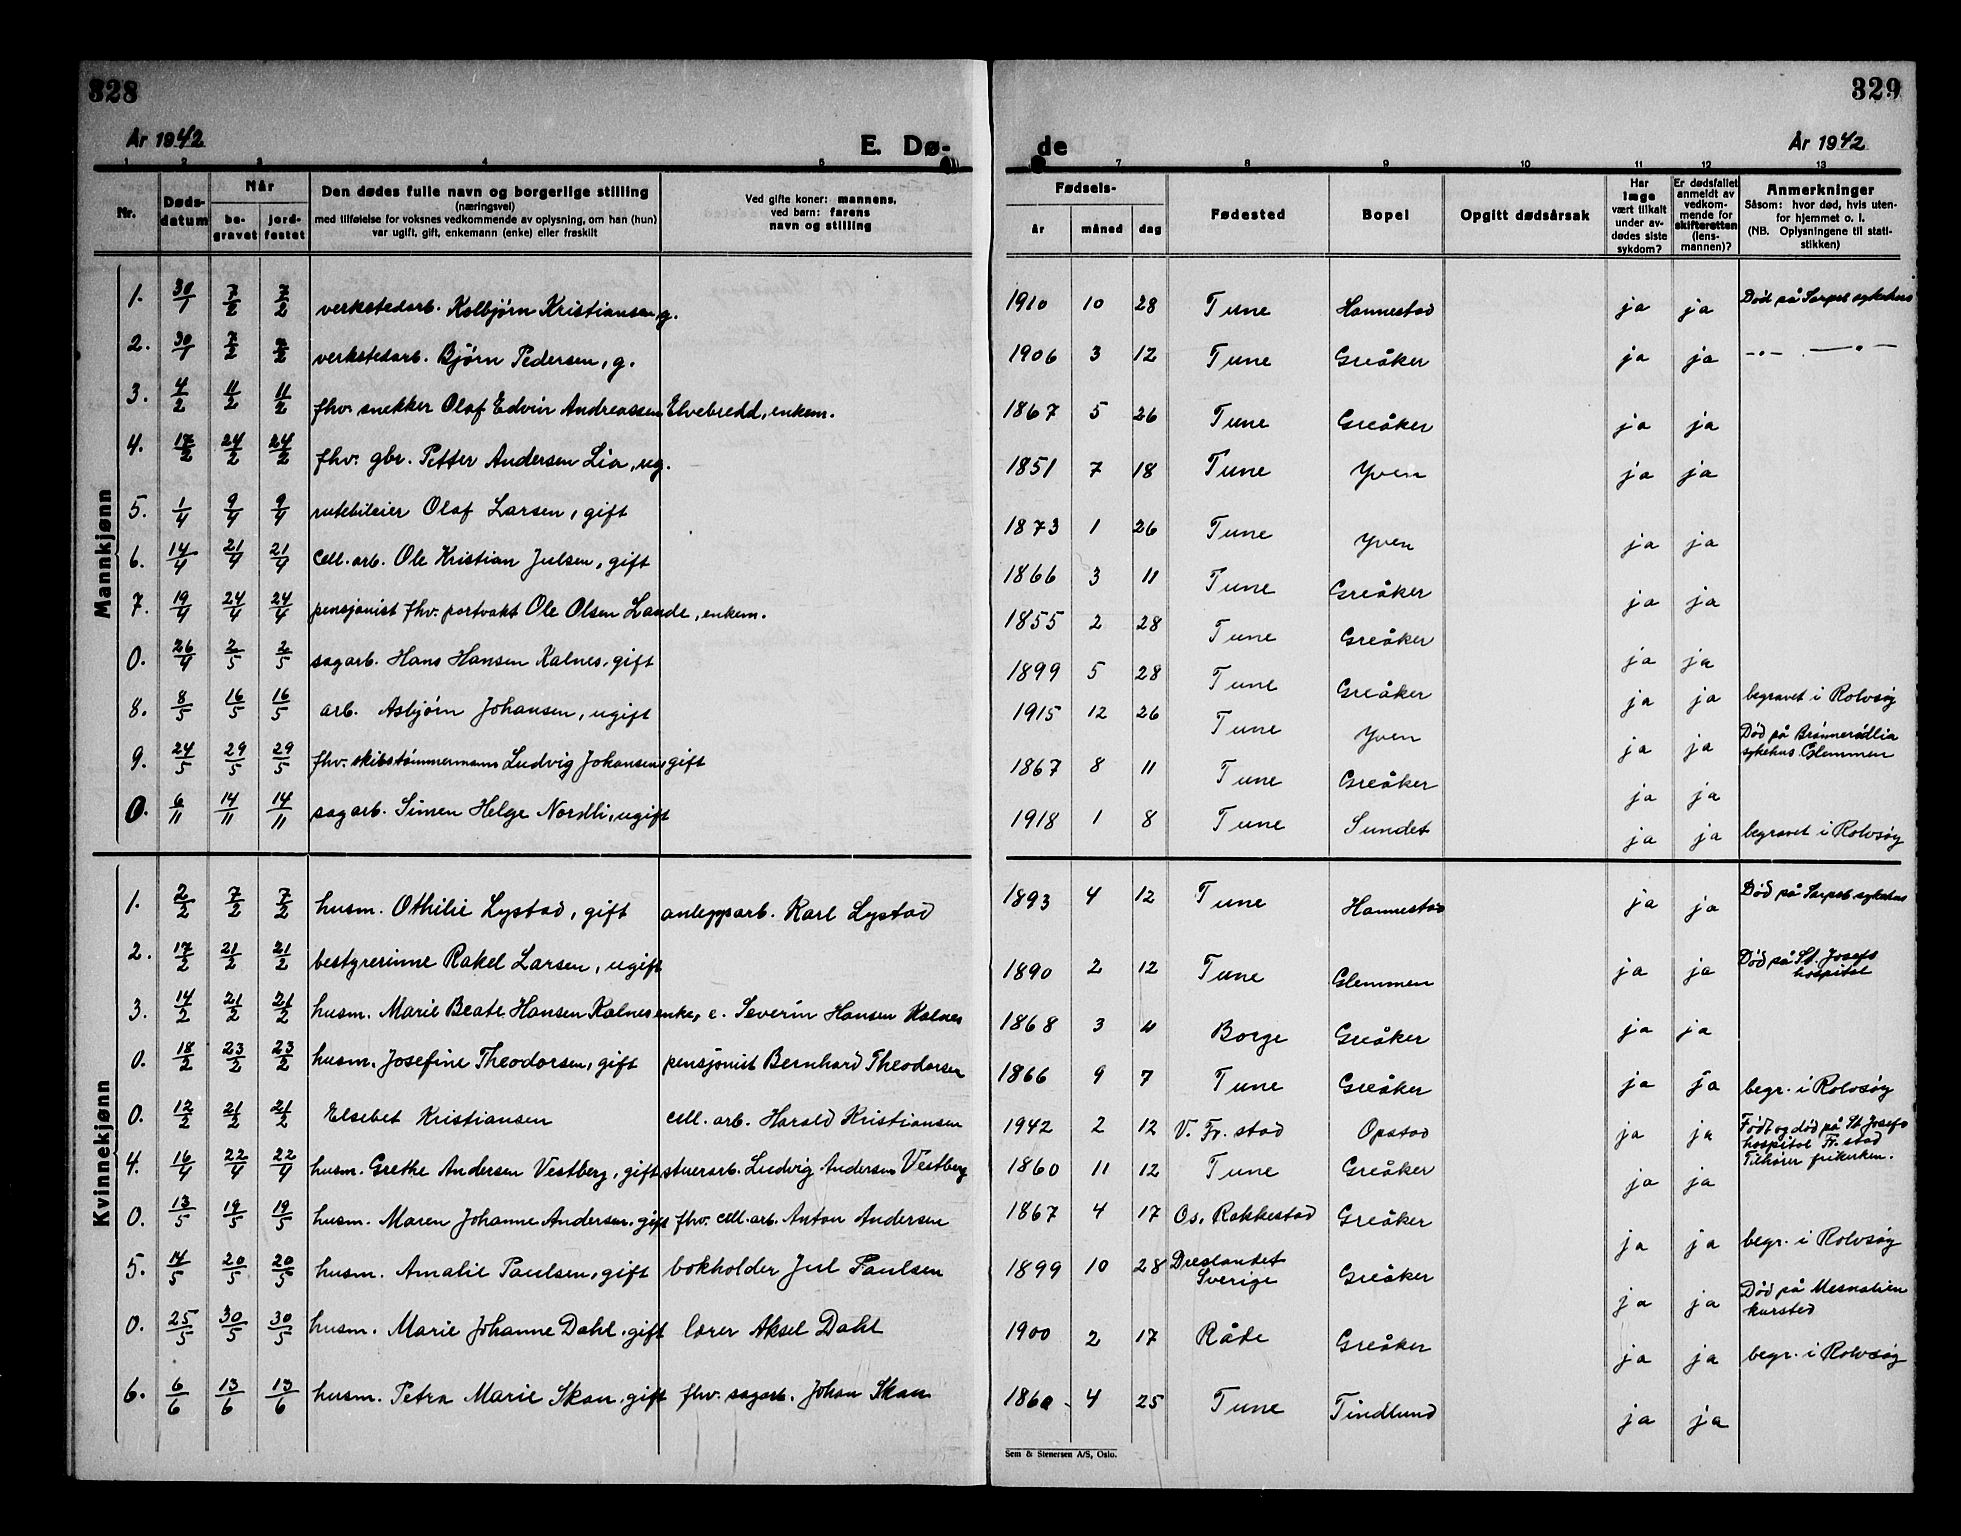 328
År 1942
E. Dø-
1 2 3 4 5
Nr.
Døds-
datum
Når
be-
gravet
jord-
festet
Den dødes fulle navn og borgerlige stilling
(næringsvei)
med tilføielse for voksnes vedkommende av oplysning, om han (hun)
var ugift, gift, enkemann (enke) eller fraskilt
Ved gifte koner: mannens,
ved barn: farens
navn og stilling
Mannkjønn
1. 30/1 7/2 7/2 verkstedarb. Kolbjørn Kristiansen, g.
2. 30/1 7/2 7/2 verkstedarb. Bjørn Pedersen, g.
3. 4/2 11/2 11/2 fhv. snekker Olaf Edvin Andreassen Elvebredd, enkem.
4. 17/2 24/2 24/2 fhv. gbr. Petter Andersen Lia, ug.
5. 1/4 9/4 9/4 rutebileier Olaf Larsen, gift
6. 14/4 21/4 21/4 cell. arb. Ole Kristian Julsen, gift
7. 19/4 24/4 24/4 pensjonist fhv. portvakt Ole Olsen Lande, enkem.
0. 26/4 2/5 2/5 sagarb. Hans Hansen Kalnes, gift
8. 8/5 16/5 16/5 arb. Asbjørn Johansen, ugift
9. 24/5 29/5 29/5 fhv. skibstømmermann Ludvig Johansen, gift
0. 6/11 14/11 14/11 sagarb. Simen Helge Nordli, ugift
Kvinnekjønn
1. 2/2 7/2 7/2 husm. Othilie Lystad, gift anleggsarb. Karl Lystad
2. 17/2 21/2 21/2 bestyrerinne Rakel Larsen, ugift
3. 14/2 21/2 21/2 husm. Marie Beate Hansen Kalnes enke, e. Severin Hansen Kalnes
0. 18/2 23/2 23/2 husm. Josefine Theodorsen, gift pensjonist Bernhard Theodorsen
0. 12/2 21/2 21/2 Elsebet Kristiansen cell. arb. Harald Kristiansen
4. 16/4 22/4 22/4 husm. Grethe Andersen Vestberg, gift stuerarb. Ludvig Andersen Vestberg
0. 13/5 19/5 19/5 husm. Maren Johanne Andersen, gift fhv. cell. arb. Anton Andersen
5. 14/5 20/5 20/5 husm. Amalie Paulsen, gift bokholder Jul Paulsen
0. 25/5 30/5 30/5 husm. Marie Johanne Dahl, gift lærer Aksel Dahl
6. 6/6 13/6 13/6 husm. Petra Marie Skau, gift fhv. sagarb. Johan Skau
329
de
År 1942
7 8 9 10 11 12 13
Fødsels-
år måned dag
Fødested
Bopel
Opgitt dødsårsak
Har
læge
vært tilkalt
under av-
dødes siste
sykdom?
Er dødsfallet
anmeldt av
vedkom-
mende for
skifteretten
(lens-
mannen)?
Anmerkninger
Såsom: hvor død, hvis uten-
for hjemmet o. l.
(NB. Oplysningene til stati-
stikken)
1910 10 28 Tune Hannestad ja ja Død på Sarpsb sykehus
1906 3 12 Tune Greåker ja ja —〃— . —〃—
1867 5 26 Tune Greåker ja ja
1851 7 18 Tune Yven ja ja
1873 1 26 Tune Yven ja ja
1866 3 11 Tune Greåker ja ja
1855 2 28 Tune Greåker ja ja
1899 5 28 Tune Greåker ja ja begravet i Rolvsøy
1915 12 26 Tune Yven ja ja Død på Brønnerødlia
sykehus Glemmen
1867 8 11 Tune Greåker ja ja
1918 1 8 Tune Sundet ja ja begravet i Rolvsøy
1893 4 12 Tune Hannestad ja ja Død på Sarpsb sykehus
1890 2 12 Tune Glemmen ja ja Død på St. Josefs
hospital
1868 3 4 Borge Greåker ja ja
1866 9 7 Tune Greåker ja ja begr. i Rolvsøy
1942 2 12 V. Fr. stad Opstad ja ja Født og død på St Josefs
hospital Fr. stad
Tilhører frikirken.
1860 11 12 Tune Greåker ja ja
1867 4 17 Os, Rakkestad Greåker ja ja begr. i Rolvsøy
1899 10 28 Dreslandet
Sverige Greåker ja ja Død på Mesnalien
kursted
1900 2 17 Råde Greåker ja ja begr. i Rolvsøy
1860 4 25 Tune Tindlund ja ja
Sem & Stenersen A/S, Oslo.